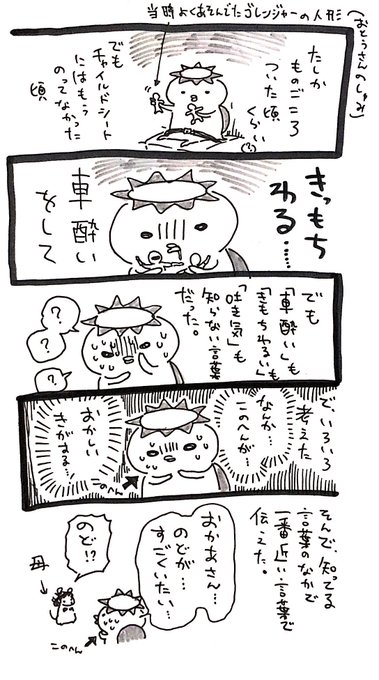 当時よくあそんでたゴレンジャーの人形
(おとうさんのしゅみ)
たしか
ものごころ
ついた頃
くらい
でも
チャイルドシート
にはもう
のってなかった
頃
きっもち
わる……
車酔い
をして
でも
「車酔い」も
「きもちわるい」も
「吐き気」も
知らない言葉
だった。
?
?
?
でいろいろ
考えた
なんか…
このへんが…
おかしい
きがする…
このへん
そんで、知ってる
言葉のなかで
一番近い言葉で
伝えた。
おかあさん…
のどが…
すごくいたい…
のど!?
母
このへん